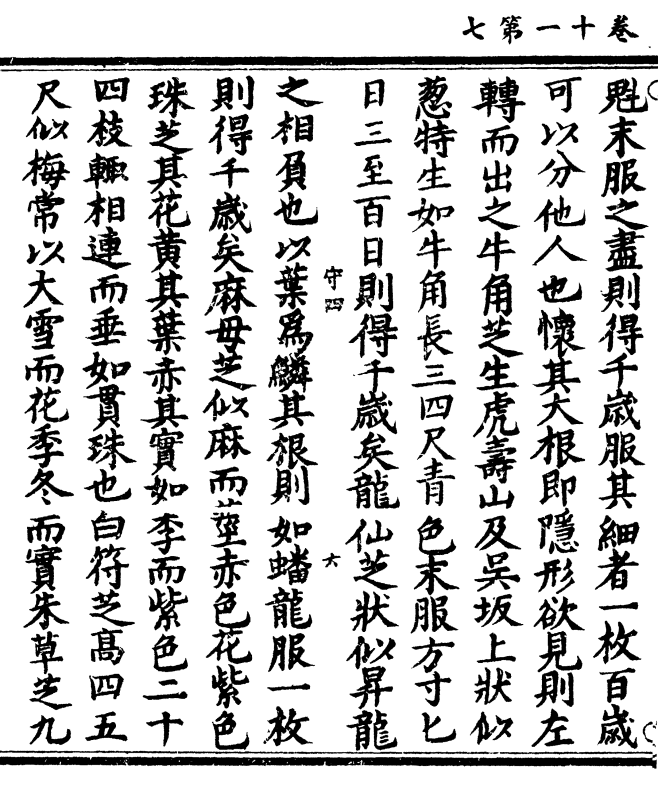 卷十一第七
魁末服之盡則得千歲服其細者一枚百歲
可以分他人也懷其大根即隱形欲見則左
轉而出之牛角芝生虎壽山及吳坂上狀似
葱特生如牛角長三四尺青色末服方寸匕
日三至百日則得千歲矣龍仙芝狀似昇龍
守四 六
之相負也以葉為鱗其根則如蟠龍服一枚
則得千歲矣麻母芝似麻而莖赤色花紫色
珠芝其花黃其葉赤其實如李而紫色二十
四枝輙相連而垂如貫珠也白符芝高四五
尺似梅常以大雪而花季冬而實朱草芝九